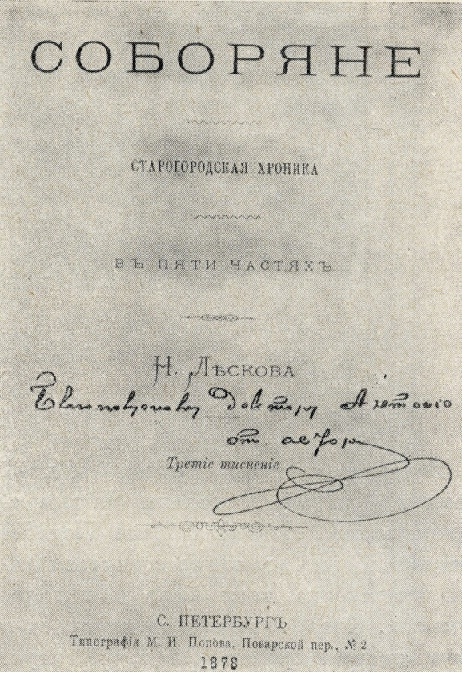 СОБОРЯНЕ
СТАРОГОРОДСКАЯ ХРОНИКА
ВЪ ПЯТИ ЧАСТЯХЪ
Н. ЛѢСКОВА
Доктору
от автора
Третіе тисненіе
С. ПЕТЕРБУРГЪ
Типографія М. И. Попова, Поварской пер., № 2
1878